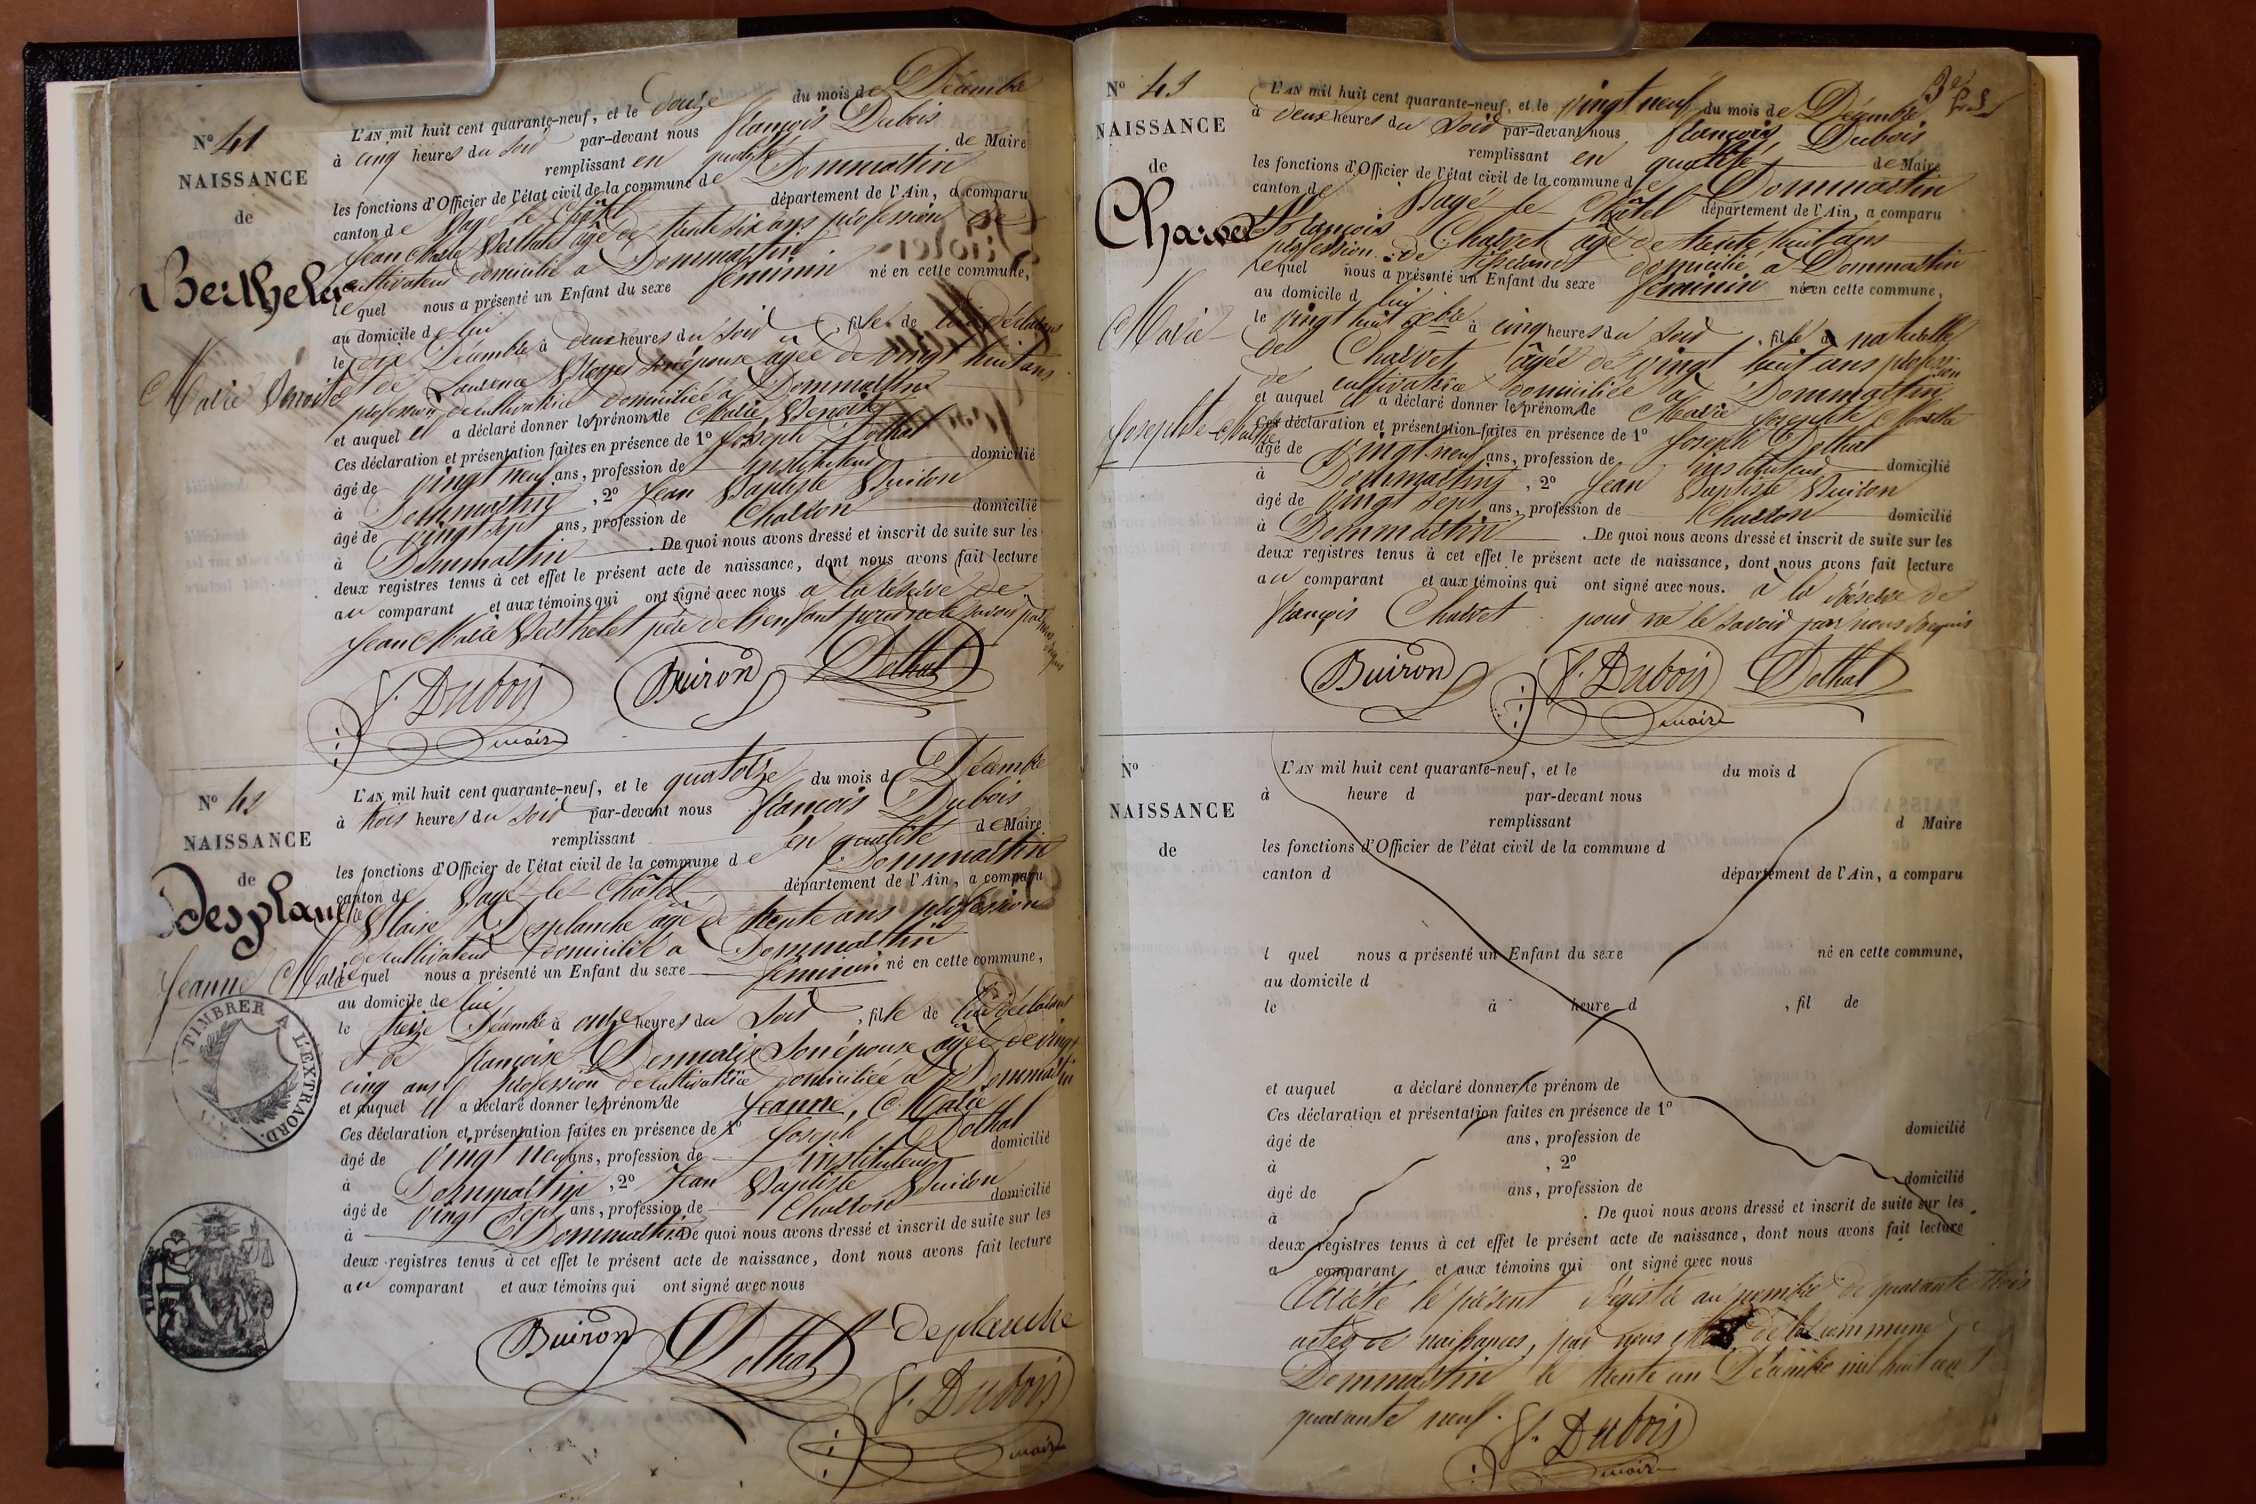 N° 41
NAISSANCE
de
Berthelet
Marie Benoite
L'AN mil huit cent quarante-neuf, et le douze du mois de Décembre
à cinq heures du soir par-devant nous françois Dubois
remplissant en qualité de Maire
les fonctions d'Officier de l'état civil de la commune de Dommartin
canton de Bagé le Châtel département de l'Ain, a comparu
Jean Marie Berthelet âgé de trente six ans profession de
cultivateur domicilié a Dommartin
lequel nous a présenté un Enfant du sexe féminin né en cette commune,
au domicile de lui
le Décembre à deux heures du soir, fille de lui déclarant
et de Laurence son épouse âgée de vingt huit ans
profession de cultivatrice domiciliée a Dommartin
et auquel il a déclaré donner les prénoms de Marie Benoite
Ces déclaration et présentation faites en présence de 1° Joseph Dothal
âgé de vingt neuf ans, profession de instituteur domicilié
à Dommartin, 2° Jean Baptiste Buiron
âgé de vingt sept ans, profession de Charron domicilié
à Dommartin. De quoi nous avons dressé et inscrit de suite sur les
deux registres tenus à cet effet le présent acte de naissance, dont nous avons fait lecture
au comparant et aux témoins qui ont signé avec nous a la réserve de
Jean Marie Berthelet père de l'enfant pour ne le savoir par nous requis
f. Dubois Buiron Dothal
maire
N° 42
NAISSANCE
de
Desplanche
Jeanne Marie
L'AN mil huit cent quarante-neuf, et le quatorze du mois de Décembre
à trois heures du soir par-devant nous françois Dubois
remplissant en qualité de Maire
les fonctions d'Officier de l'état civil de la commune de Dommartin
canton de Bagé le Châtel département de l'Ain, a comparu
Blaise Desplanche âgé de trente ans profession
de cultivateur domicilié a Dommartin
lequel nous a présenté un Enfant du sexe féminin né en cette commune,
au domicile de lui
le treize Décembre à onze heures du soir, fille de lui déclarant
et de françoise son épouse âgée de vingt
cinq ans profession de cultivatrice domiciliée a Dommartin
et auquel il a déclaré donner les prénoms de Jeanne, Marie
Ces déclaration et présentation faites en présence de 1° Joseph Dothal
âgé de vingt neuf ans, profession de instituteur domicilié
à Dommartin, 2° Jean Baptiste Buiron
âgé de vingt sept ans, profession de Charron domicilié
à Dommartin De quoi nous avons dressé et inscrit de suite sur les
deux registres tenus à cet effet le présent acte de naissance, dont nous avons fait lecture
au comparant et aux témoins qui ont signé avec nous
Buiron Dothal Deplanche
f. Dubois
maire
TIMBRER A L'EXTRAORD.
N° 43
NAISSANCE
de
Charvet
Marie
Josephte Marthe
L'AN mil huit cent quarante-neuf, et le vingt neuf du mois de Décembre
à deux heures du soir par-devant nous françois Dubois
remplissant en qualité de Maire
les fonctions d'Officier de l'état civil de la commune de Dommartin
canton de Bagé le Châtel département de l'Ain, a comparu
François Charvet âgé de trente huit ans
profession de tisserand domicilié a Dommartin
lequel nous a présenté un Enfant du sexe féminin né en cette commune,
au domicile d lui
le vingt huit Xbre à cinq heures du soir, fille naturelle
de Charvet âgée de vingt huit ans profession
de cultivatrice domiciliée a Dommartin
et auquel il a déclaré donner les prénoms de Marie Josephte Marthe
Ces déclaration et présentation faites en présence de 1° Joseph Dothal
âgé de vingt neuf ans, profession de instituteur domicilié
à Dommartin, 2° Jean Baptiste Buiron
âgé de vingt sept ans, profession de Charron domicilié
à Dommartin. De quoi nous avons dressé et inscrit de suite sur les
deux registres tenus à cet effet le présent acte de naissance, dont nous avons fait lecture
au comparant et aux témoins qui ont signé avec nous. a la réserve de
françois Charvet pour ne le savoir par nous requis
Buiron f. Dubois Dothal
maire
N°
NAISSANCE
de
L'AN mil huit cent quarante-neuf, et le du mois d
à heure d par-devant nous
remplissant d Maire
les fonctions d'Officier de l'état civil de la commune d
canton d département de l'Ain, a comparu
l quel nous a présenté un Enfant du sexe né en cette commune,
au domicile d
le à heure d, fil de
et auquel a déclaré donner le prénom de
Ces déclaration et présentation faites en présence de 1°
âgé de ans, profession de domicilié
à, 2°
âgé de ans, profession de domicilié
à. De quoi nous avons dressé et inscrit de suite sur les
deux registres tenus à cet effet le présent acte de naissance, dont nous avons fait lecture
a comparant et aux témoins qui ont signé avec nous
Arrêté le présent Registre au nombre de quarante trois
actes de naissances, par nous Maire de la commune de
Dommartin le trente un Décembre mil huit cent
quarante neuf. f. Dubois
maire